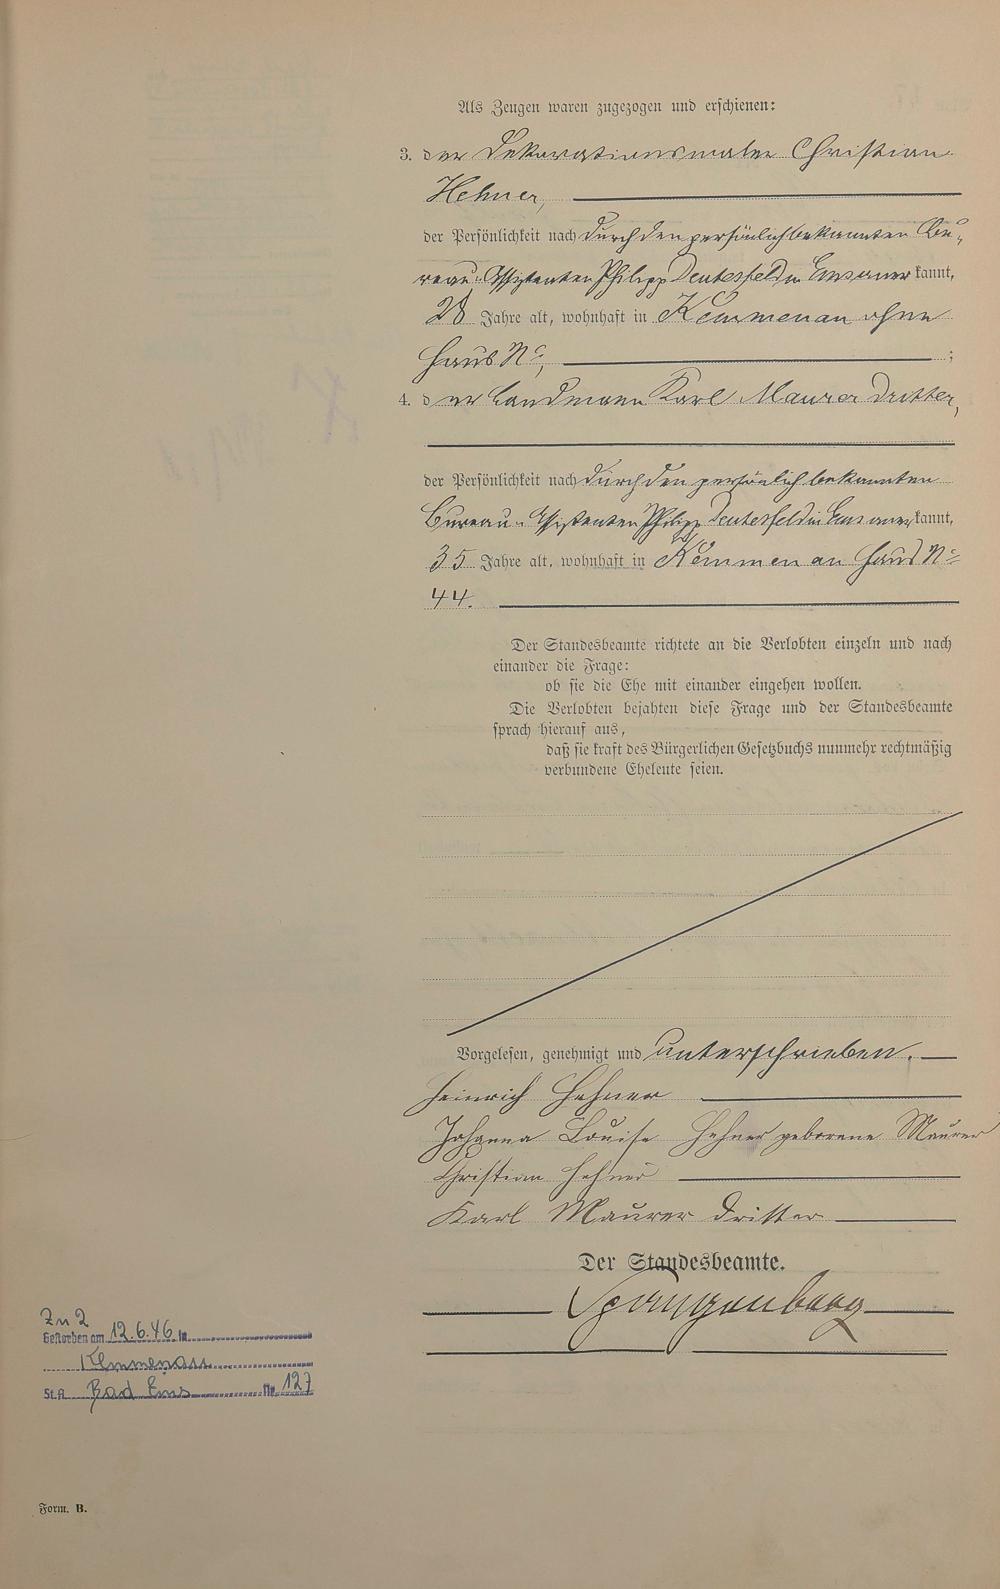 Als Zeugen waren zugezogen und erschienen:
3. der Dekorationsmaler Christian
Hehner,
der Persönlichkeit nach durch den persönlich bekannten Bu-
reau-Assistenten Philipp Deutesfeld in Ems anerkannt,
28 Jahre alt, wohnhaft in Kemmenau ohne
Haus No, ;
4. der Landmann Karl Maurer Dritter,
der Persönlichkeit nach durch den persönlich bekannten
Bureau-Assistenten Philipp Deutesfeld in Ems anerkannt,
35 Jahre alt, wohnhaft in Kemmenau Haus No
44.
Der Standesbeamte richtete an die Verlobten einzeln und nach
einander die Frage:
ob sie die Ehe mit einander eingehen wollen.
Die Verlobten bejahten diese Frage und der Standesbeamte
sprach hierauf aus,
daß sie kraft des Bürgerlichen Gesetzbuchs nunmehr rechtmäßig
verbundene Eheleute seien.
Vorgelesen, genehmigt und unterschrieben.
Heinrich Hehner
Johanna Louise Hehner geborene Maurer
Christian Hehner
Karl Maurer Dritter
Der Standesbeamte.
Spangenberg
Zu 2
Gestorben am 12.6.46 in
Kemmenau
St.A. Bad Ems Nr. 127
Form. B.